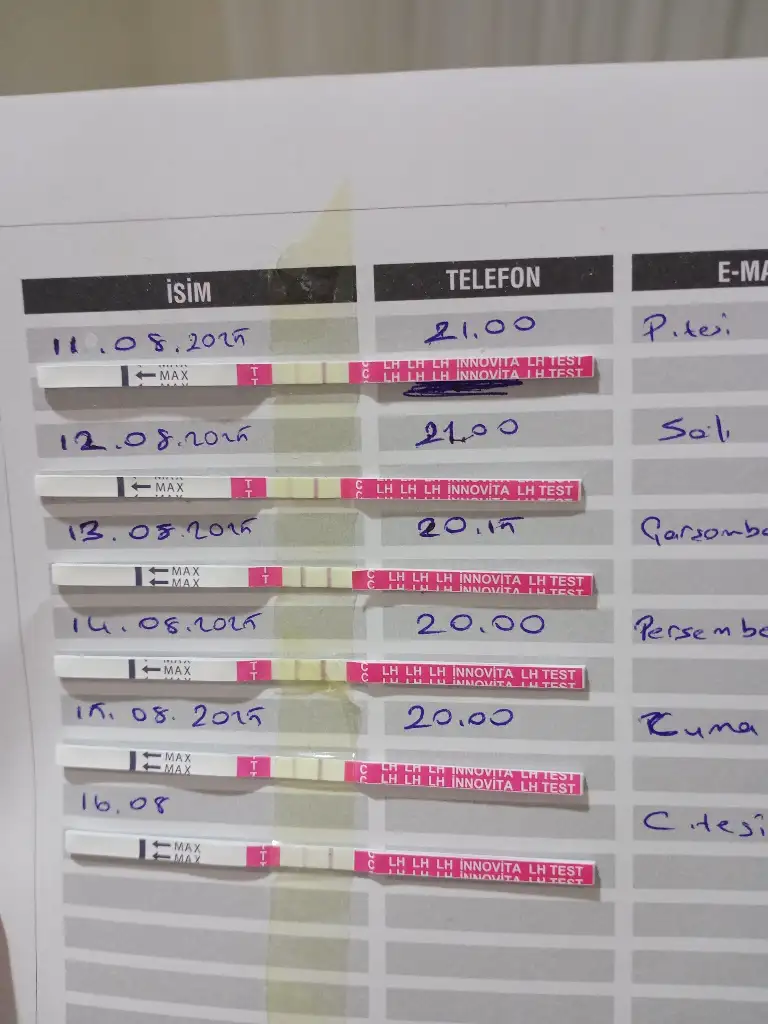 İSİM TELEFON E-MA
11.08.2025 21.00 P.tesi
← MAX T T C C LH LH LH INNOVİTA LH TEST
LH LH LH INNOVİTA LH TEST
12.08.2025 21.00 Salı
← MAX T T C C LH LH LH INNOVİTA LH TEST
13.08.2025 20.15 Çarşamba
← MAX T T C C LH LH LH INNOVİTA LH TEST
← MAX
14.08.2025 20.00 Perşembe
← MAX T T C C LH LH LH INNOVİTA LH TEST
LH LH LH INNOVİTA LH TEST
15.08.2025 20.00 Cuma
← MAX T T C LH LH LH INNOVİTA LH TEST
← MAX LH LH LH INNOVİTA LH TEST
16.08 C.tesi
← MAX T T C C LH LH LH INNOVİTA LH TEST
← MAX LH LH LH INNOVİTA LH TEST